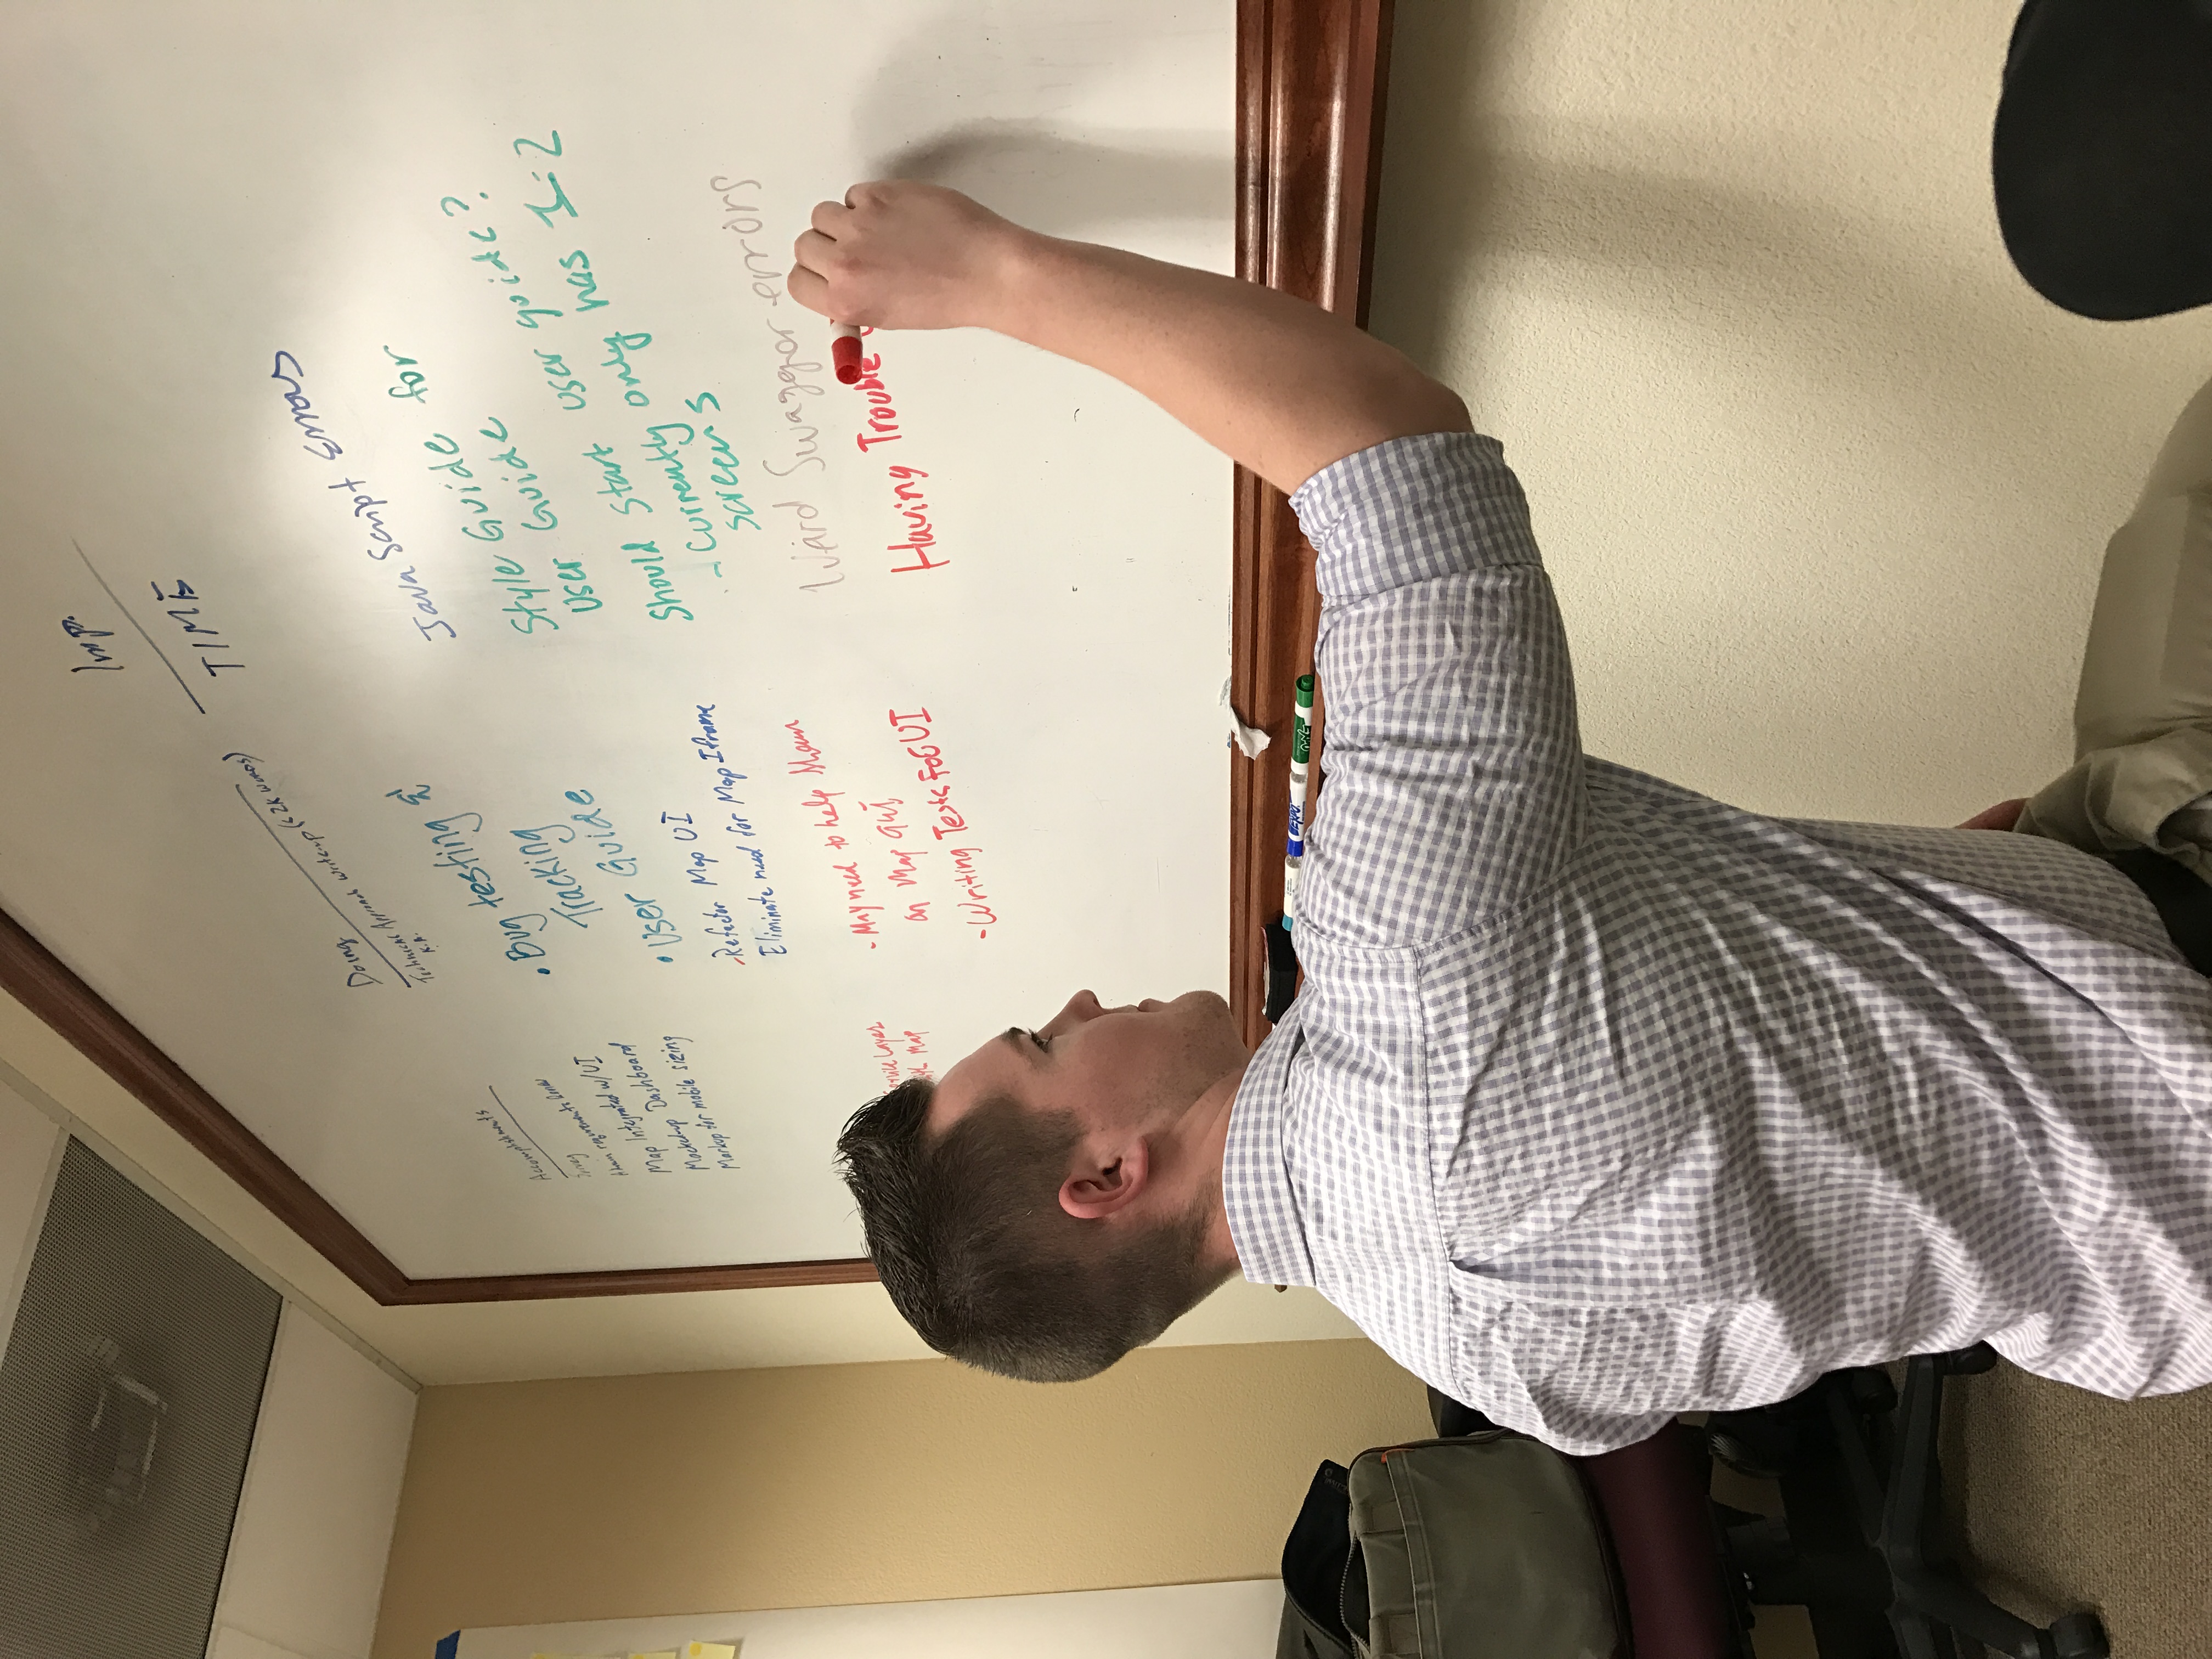 Accomplishments
Survey
requirements
Map Integrated w/UI
Mocked-up Dashboard
Markup for mobile sizing
Service Layer
Map
Doing
Technical Approach Write-up (< 2K words)
K.A.
• Bug testing &
Tracking
• User Guide
- Refactor Map UI
Eliminate need for Map Iframe
- May need to help Shaun
on Map GUI
- Writing Tests For GUI
Imp.
TIME
Java Script Errors
Style Guide for
User Guide
Should start user guide?
- Currently only has 1-2
screens
Wierd Swagger errors
Having Trouble
EXPO